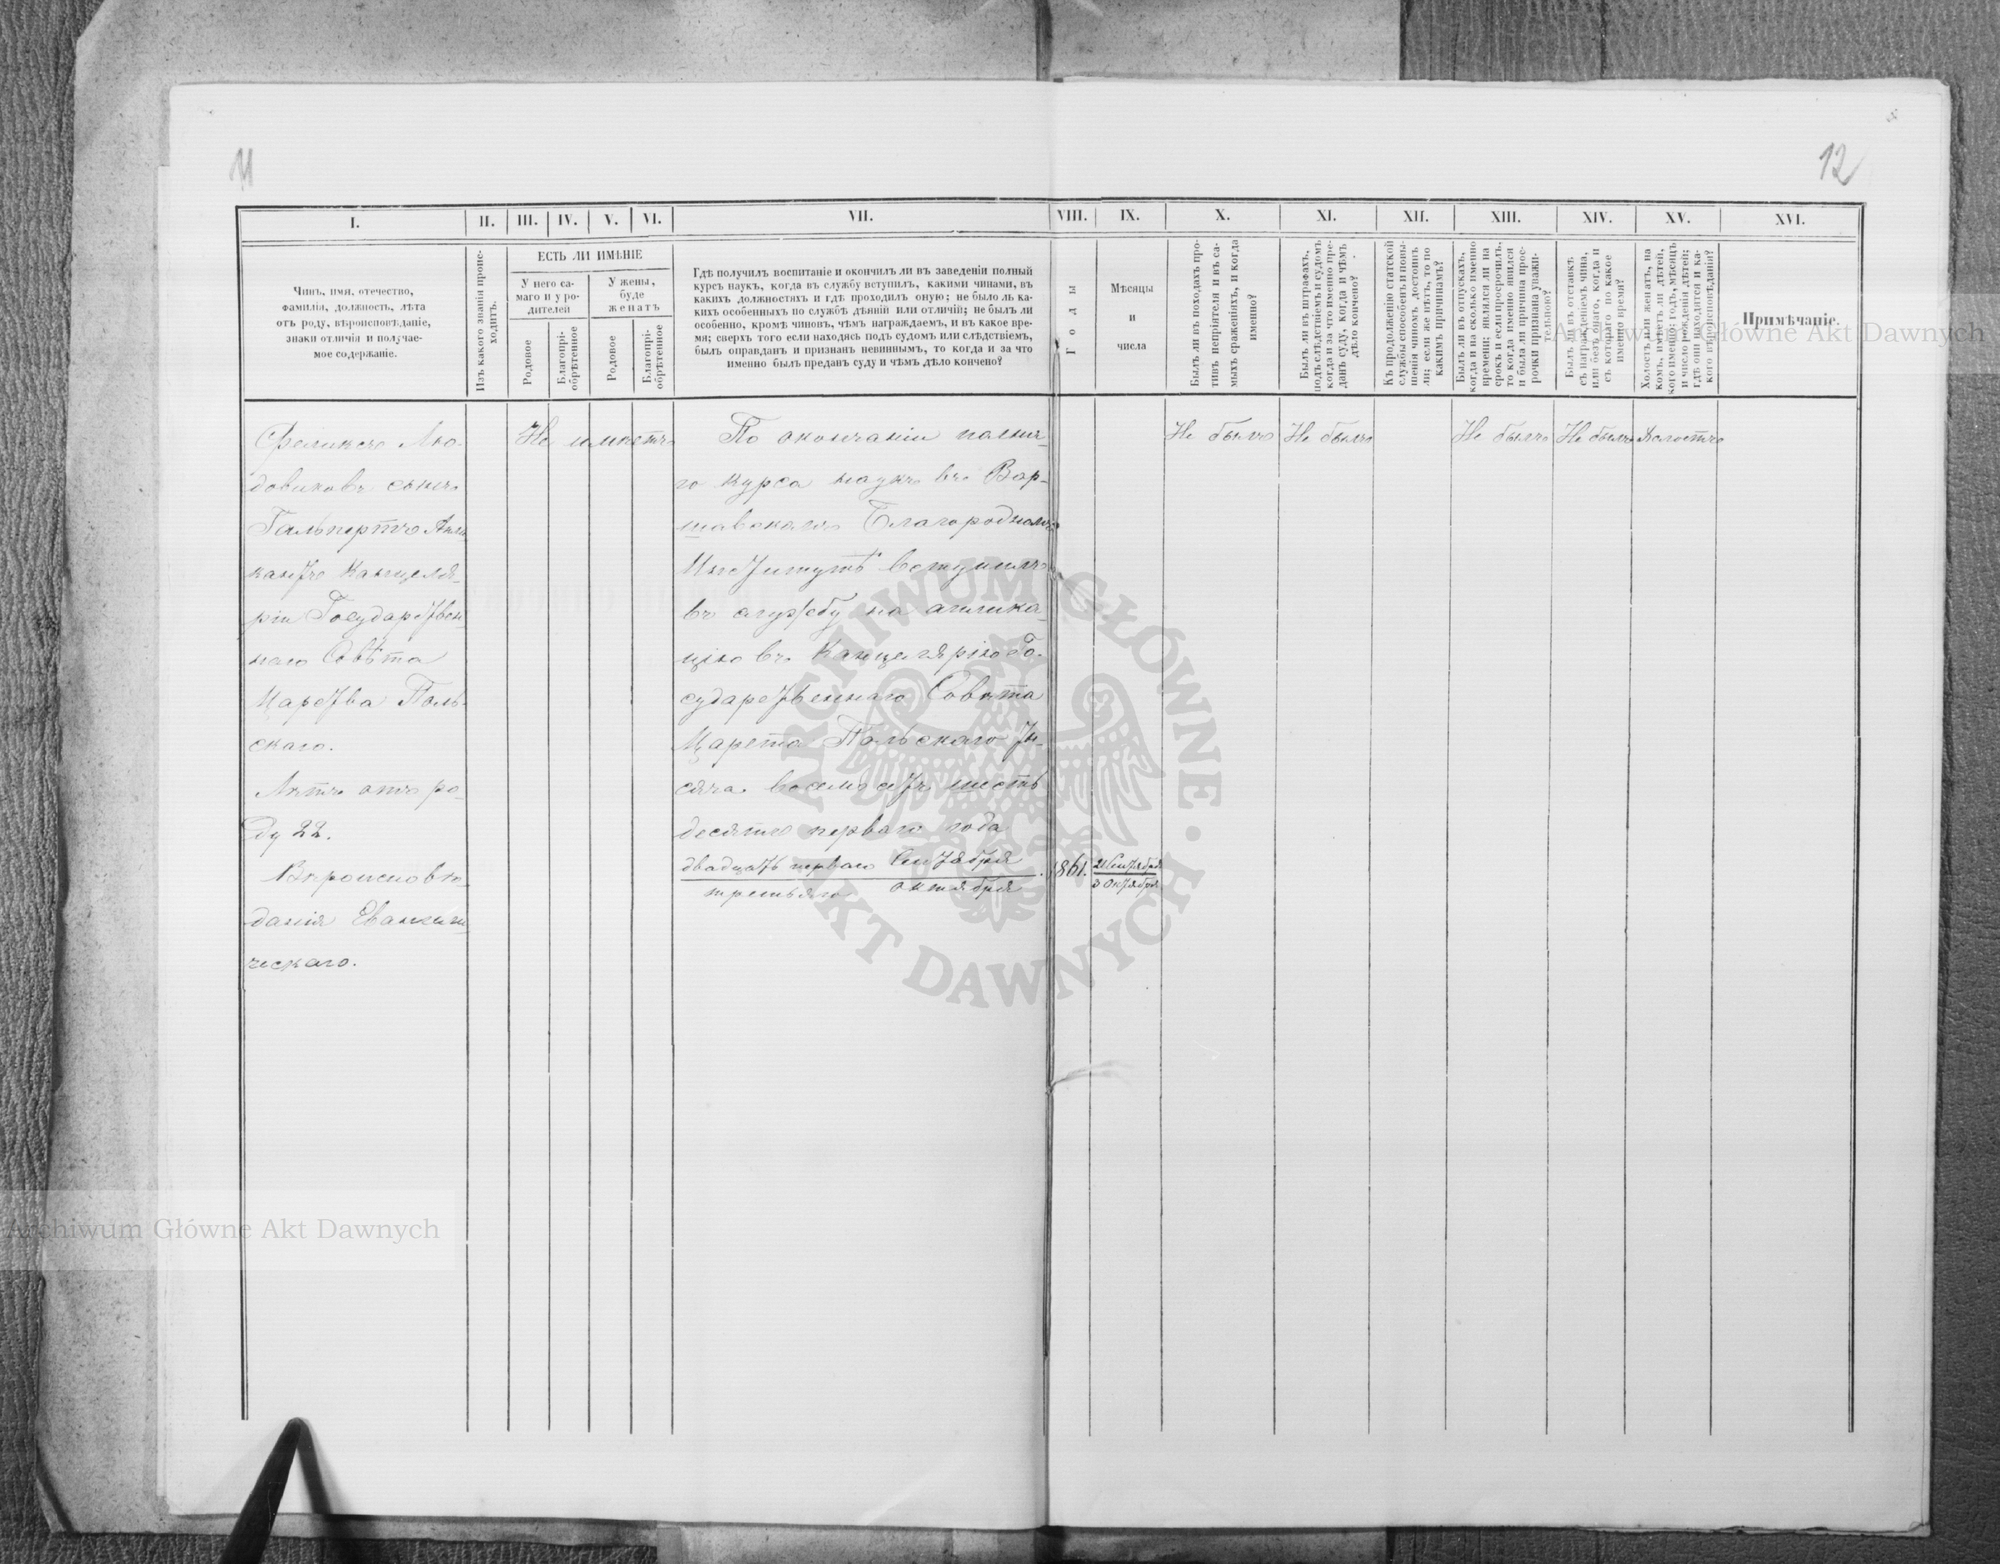 11
12
I.
II.
III.
IV.
V.
VI.
VII.
VIII.
IX.
X.
XI.
XII.
XIII.
XIV.
XV.
XVI.
Чинъ, имя, отечество,
фамилія, должность, лѣта
отъ роду, вѣроисповѣданіе,
знаки отличія и получае-
мое содержаніе.
Изъ какого званія проис-
ходитъ.
ЕСТЬ ЛИ ИМѢНІЕ
У него са-
маго и у ро-
дителей
У жены,
буде
женатъ
Родовое
Благопрі-
обрѣтенное
Родовое
Благопрі-
обрѣтенное
Гдѣ получилъ воспитаніе и окончилъ ли въ заведеніи полный
курсъ наукъ, когда въ службу вступилъ, какими чинами, въ
какихъ должностяхъ и гдѣ проходилъ оную; не было ль ка-
кихъ особенныхъ по службѣ дѣяній или отличій; не былъ ли
особенно, кромѣ чиновъ, чѣмъ награждаемъ, и въ какое вре-
мя; сверхъ того если находясь подъ судомъ или слѣдствіемъ,
былъ оправданъ и признанъ невиннымъ, то когда и за что
именно былъ преданъ суду и чѣмъ дѣло кончено?
Годы
Мѣсяцы
и
числа
Былъ ли въ походахъ про-
тивъ непріятеля и въ са-
мыхъ сраженіяхъ, и когда
именно?
Былъ ли въ штрафахъ,
подъ слѣдствіемъ и судомъ
когда и за что именно пре-
данъ суду, когда и чѣмъ
дѣло кончено?
Къ продолженію статской
службы способенъ и повы-
шенія чиномъ достоинъ
ли; если же нѣтъ, то по
какимъ причинамъ?
Былъ ли въ отпускахъ,
когда и на сколько именно
времени; являлся ли на
срокъ и если просрочилъ,
то когда именно явился
и была ли причина прос-
рочки признана уважи-
тельною?
Былъ ли въ отставкѣ
съ награжденіемъ чина,
или безъ онаго, когда и
съ котораго по какое
именно время?
Холостъ или женатъ, на
комъ, имѣетъ ли дѣтей,
кого именно; годъ, мѣсяцъ
и число рожденія дѣтей;
гдѣ они находятся и ка-
кого вѣроисповѣданія?
Примѣчаніе.
Феликсъ Лю-
довиковъ сынъ
Гальпертъ Апли-
кантъ Канцеля-
ріи Государствен-
наго Совѣта
Царства Поль-
скаго.
Лѣтъ отъ ро-
ду 22.
Вѣроисповѣ-
данія Евангели-
ческаго.
Не имѣетъ
По окончаніи полна-
го курса наукъ въ Вар-
шавскомъ Благородномъ
Институтѣ вступилъ
въ службу на апплика-
цію въ Канцелярію Го-
сударственнаго Совѣта
Царства Польскаго ты-
сяча восемьсотъ шесть-
десятъ перваго года
двадцать перваго Сентября
третьяго Октября
1861.
21 Сентября
3 Октября
Не былъ
Не былъ
Не былъ
Не былъ
Холостъ
ARCHIWUM GŁÓWNE · AKT DAWNYCH ·
Archiwum Główne Akt Dawnych
Archiwum Główne Akt Dawnych